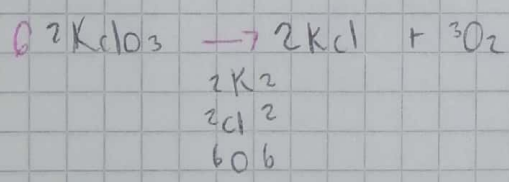 6 2KclO3 → 2Kcl + 3O2
2 K 2
2 cl 2
6 O 6